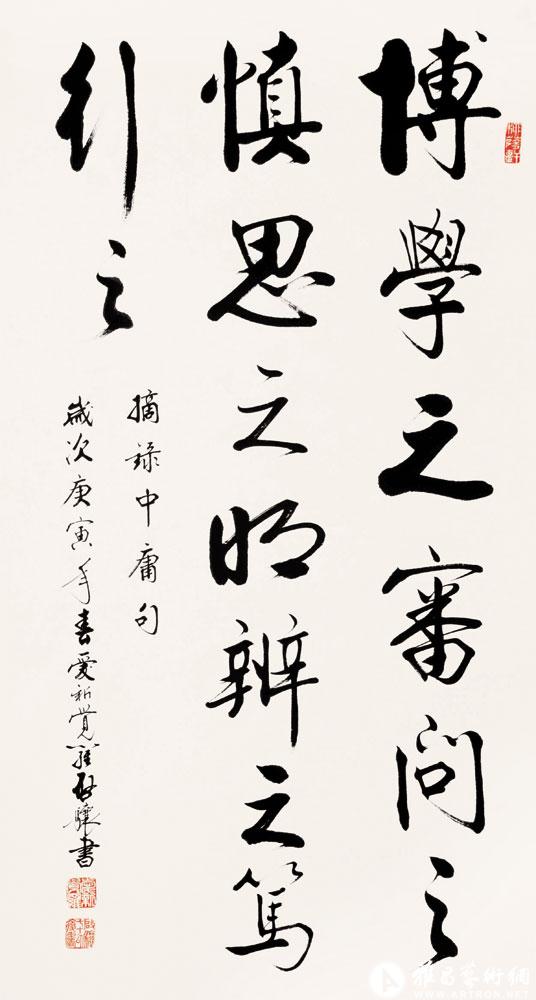 博學之審問之
慎思之明辨之篤
行之
摘録中庸句
歲次庚寅年春愛新覺羅啟驤書
雅昌藝術網
WWW.ARTRON.NET